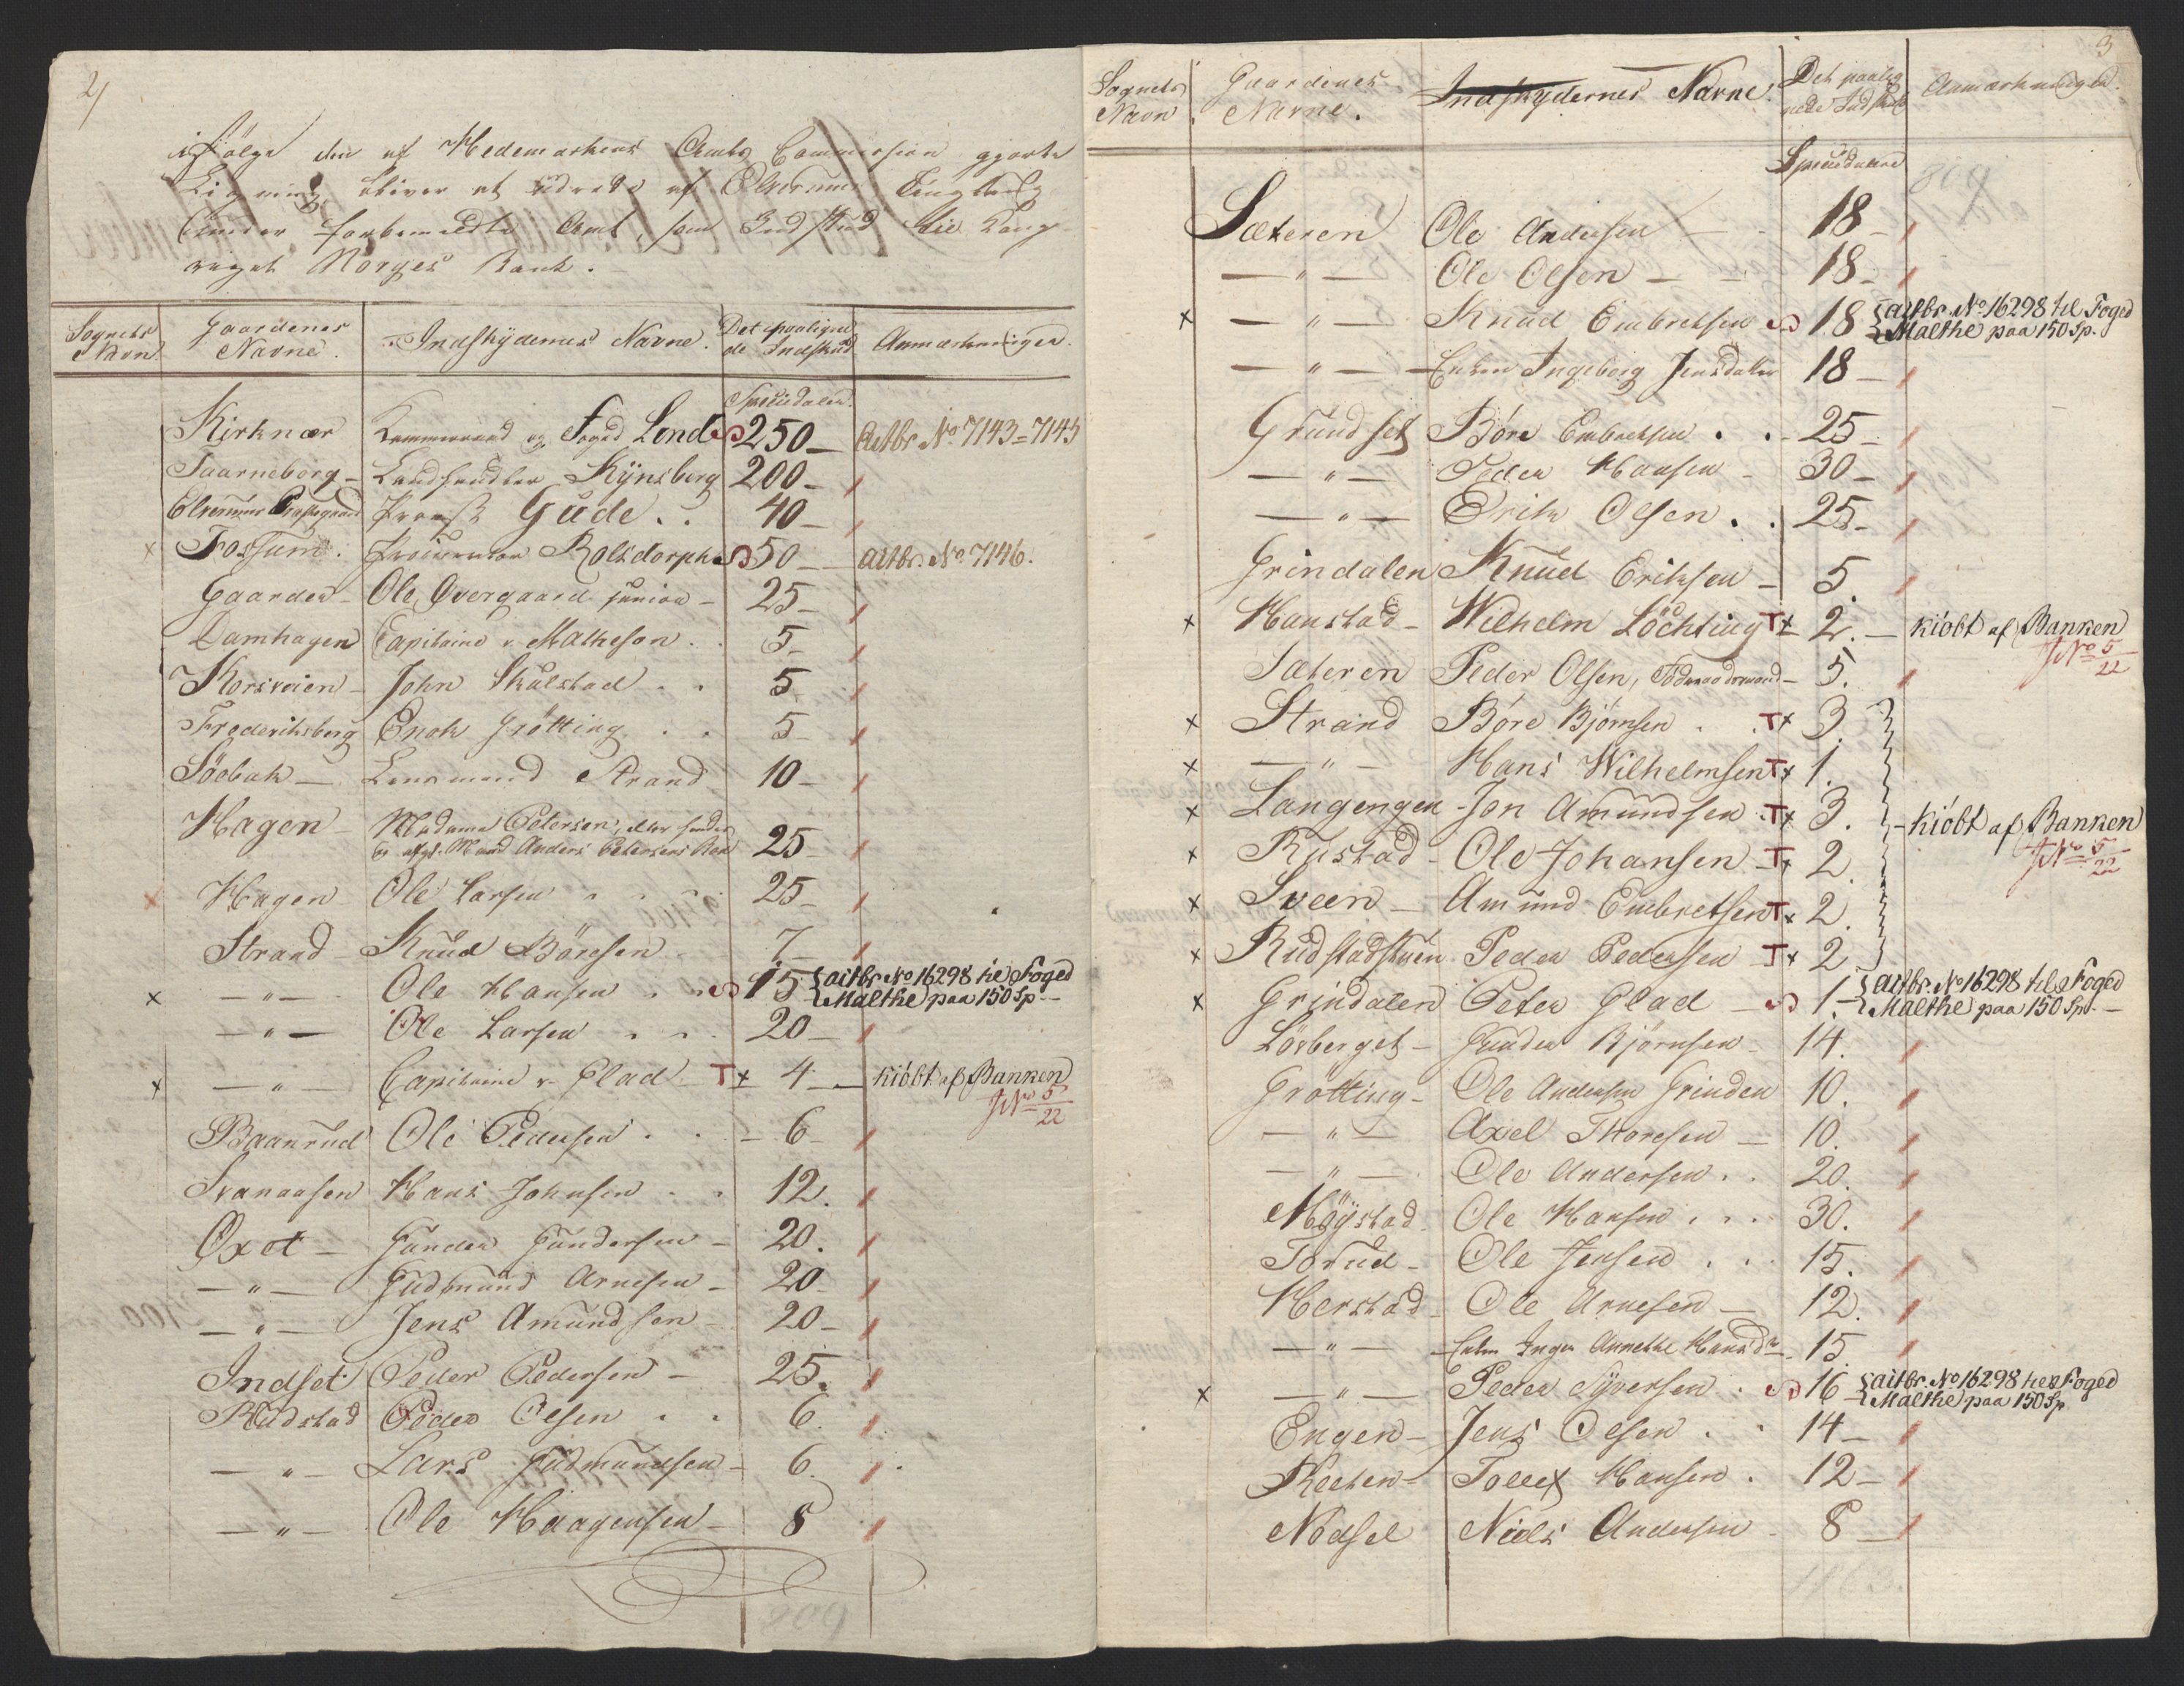 2/
ifölge den af Hedemarkens Amts Commission gjorte
Ligning bliver at udrede af Elverums Tinglaug
under forbemeldte Amt, som Indskud til Kong-
riget Norges Bank.
Sognets Navn | Gaardenes Navne. | Indskydernes Navne. | Det paaligne-de Indskud | Anmærkninger.
Speciedaler.
Kirknær Kammerraad og Foged Lond 250 Actbr. No 7143=7145
Taarneborg Landhandler Kÿnsberg 200
Elverums Præstegaard Provst Gude.. 40
x Fossum. Procurator Rolsdorph 50 actbr. No 7146.
Gaarder Ole Overgaard junior 25
Damhagen Capitaine v. Matheson. 5
Korsveien John Skulstad 5
Frederiksberg Enok Grötting 5
Söebak Lensmand Strand 10
Hagen Madame Petersen, eller hendes
25
Hagen Ole Larsen 25
Strand Knud Böresen 7
x —"— Ole Hansen 15 actbr. No 16298 til Foged
Malthe paa 150 Sp.
—"— Ole Larsen 20
x —"— Capitaine v. Glad T x 4 kiöbt af Banken
JNo 5/22
Baanrud Ole Pedersen 6
Svanaasen Hans Johnsen 12.
Oxet Gunder Gundersen 20.
—"— Gudmund Arnesen 20
—"— Jens Amundsen 20
Indset Peder Pedersen 25.
Rudstad Peder Olsen 6.
—"— Lars Gudmundsen 6.
—"— Ole Haagensen 8
809
3
Sognets Navn | Gaardenes Navne. | Indskydernes Navne. | Det paalig-nede Indskud | Anmærkninger.
Speciedaler
809
Sæteren Ole Andersen 18
—"— Ole Olsen 18
x —"— Knud Embretsen 18 actbr. No 16298 til Foged
Malthe paa 150 Sp.
—"— Enken Ingeborg Jensdatter 18
Grundset Böre Embretsen 25
—"— Peder Hansen 30
—"— Erik Olsen. 25
Grindalen Knud Eriksen 5.
x Hanstad Wilhelm Löchting T x 2. kiöbt af Banken
JNo 5/22
Sæteren Peder Olsen, 5.
x Strand Böre Björnsen T x 3.
x —"— Hans Wilhelmsen T x 1.
x Langengen Jon Amundsen T x 3. kiöbt af Banken
x Rustad Ole Johansen T x 2. JNo 5/22
x Sveen Amund Embretsen T x 2.
x Rudstadstuen Peder Pedersen T x 2
x Grindalen Peter Glad 1. actbr. No 16298 til Foged
Malthe paa 150 Sp.
Lösberget Gunder Björnsen 14.
Grötting Ole Andersen Grinden 10.
—"— Axel Thoresen 10.
—"— Ole Andersen.. 20.
Möÿstad Ole Hansen 30.
Torud Ole Jensen 15.
Herstad Ole Arnesen 12.
—"— Enken Inger Annethe Hansdr 15
x —"— Peder Sÿversen 16 actbr. No 16298 til Foged
Malthe paa 150 Sp.
Engen Jens Olsen 14
Tollef Hansen. 12
Nödsel Niels Andersen 8